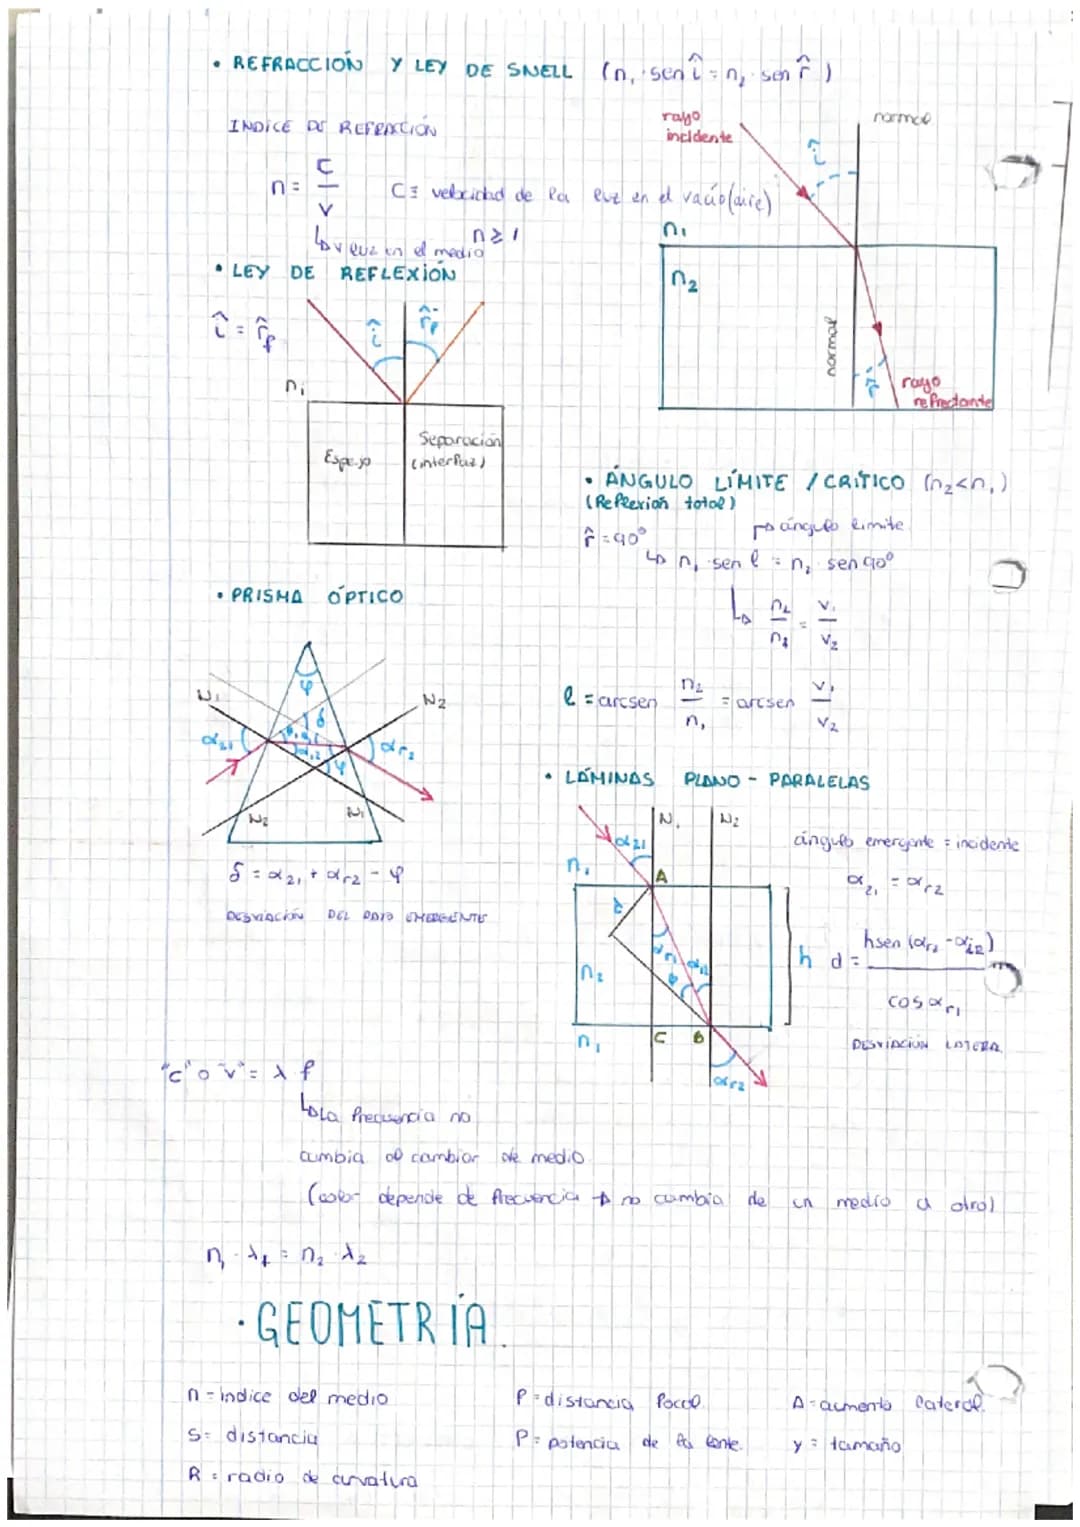 • REFRACCIÓN Y LEY DE SNELL (n₁ · sen î = n₂ · sen r̂)
INDICE DE REFRACCIÓN
n = c / v
C ≡ velocidad de la luz en el vacío (aire)
n ≥ 1
↳ v luz en el medio
rayo incidente
normal
î
n₁
n₂
normal
r̂
rayo refractante
• LEY DE REFLEXIÓN
î = r̂f
î
r̂f
n₁
Espejo
Separación
(interfaz)
• ÁNGULO LÍMITE / CRÍTICO (n₂<n₁)
(Reflexión total)
r̂ = 90°
↱ ángulo límite
↳ n₁ · sen l = n₂ · sen 90°
↳ n₂ / n₁ = v₁ / v₂
l = arcsen n₂ / n₁ = arcsen v₁ / v₂
• PRISMA ÓPTICO
φ
N₁
N₂
δ
α₂₁
αr₂
φ
N₂
N₁
δ = α₂₁ + αr2 - φ
DESVIACIÓN DEL RAYO EMERGENTE
• LÁMINAS PLANO - PARALELAS
N₁
N₂
α₂₁
n₁
A
n₂
n₁
C
B
αr2
h
ángulo emergente = incidente
α₂₁ = αr2
d = h sen (αr₁ - αi2) / cos αr₁
DESVIACIÓN LATERA
"c" o "v" = λ f
↳ La frecuencia no
cambia al cambiar de medio
(color depende de frecuencia → no cambia de un medio a otro)
n₁ · λ₁ = n₂ · λ₂
· GEOMETRÍA.
n = índice del medio
f = distancia focal
A = aumento lateral.
S = distancia
P = potencia de la lente.
y = tamaño
R = radio de curvatura